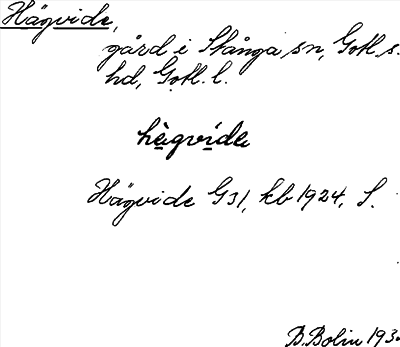 Hägvide,
gård i Stånga sn, Gotl. s.
hd, Gotl. l.
hègvíde
Hägvide G31, kb 1924, S.
B. Bolin 193